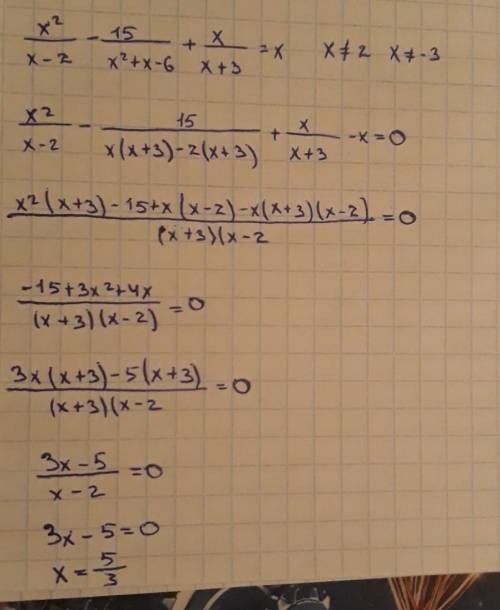 x²/(x-2) - 15/(x²+x-6) + x/(x+3) = x   x≠2   x≠-3
x²/(x-2) - 15/(x(x+3)-2(x+3)) + x/(x+3) - x = 0
(x²(x+3)-15+x(x-2)-x(x+3)(x-2))/((x+3)(x-2) = 0
(-15+3x²+4x)/((x+3)(x-2)) = 0
(3x(x+3)-5(x+3))/((x+3)(x-2) = 0
(3x-5)/(x-2) = 0
3x-5=0
x=5/3